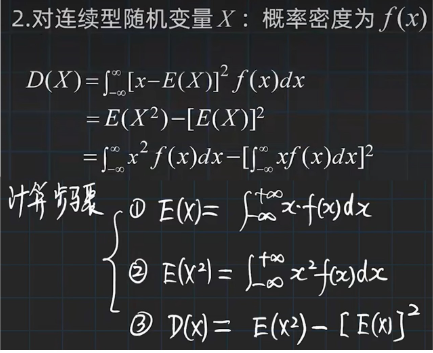 2.对连续型随机变量X：概率密度为f(x)
D(X)=∫_{-∞}^{∞}[x-E(X)]²f(x)dx
=E(X²)-[E(X)]²
=∫_{-∞}^{∞}x²f(x)dx-[∫_{-∞}^{∞}xf(x)dx]²
计算步骤
① E(X)= ∫_{-∞}^{+∞}x·f(x)dx
② E(X²)=∫_{-∞}^{+∞}x²f(x)dx
③ D(X)= E(X²)-[E(X)]²